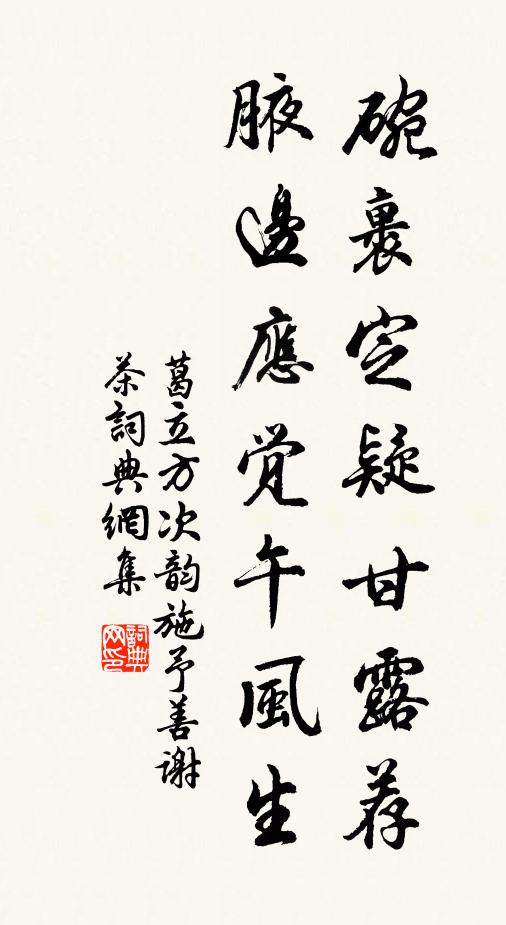 碗裏定疑甘露荐
腋邊應覺午風生
葛立方次韵施予善謝
茶詞典網集
詞典网印